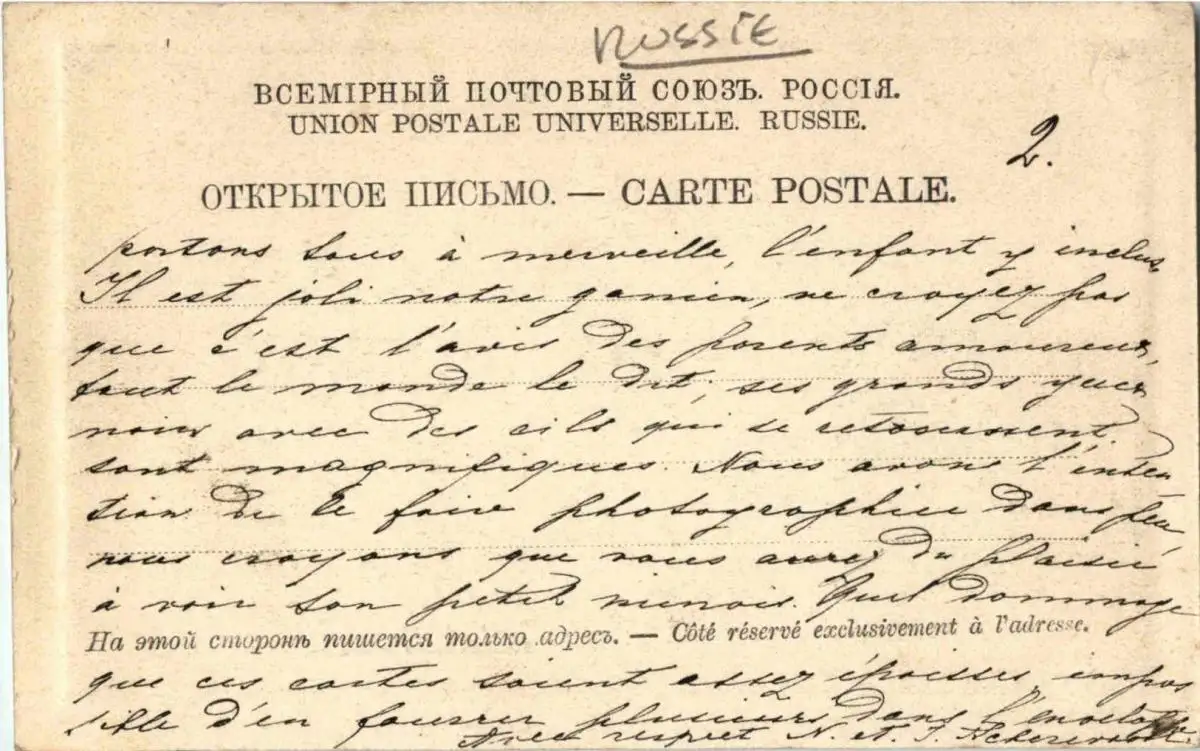 RUSSIE
ВСЕМІРНЫЙ ПОЧТОВЫЙ СОЮЗЪ. РОССІЯ.
UNION POSTALE UNIVERSELLE. RUSSIE.
2.
ОТКРЫТОЕ ПИСЬМО. — CARTE POSTALE.
portons tous à merveille, l'enfant y inclus
Il est joli notre gamin, ne croyez pas
que c'est l'avis des parents amoureux,
tout le monde le dit; ses grands yeux
noirs avec des cils qui se retoussent
sont magnifiques. Nous avons l'inten-
tion de le faire photographier dans peu
nous croyons que vous aurez du plaisir
à voir son petit minois. Quel dommage
На этой сторонѣ пишется только адресъ. — Côté réservé exclusivement à l'adresse.
que ces cartes soient assez épaisses, impos
sible d'en fourrer plusieurs dans l'enveloppe
Avec respect N. et J.